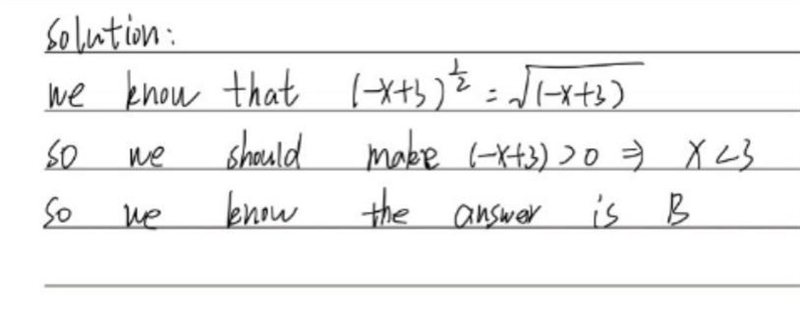 Solution:
we know that (-x+3)^{\frac{1}{2}} = \sqrt{(-x+3)}
so we should make (-x+3) > 0 ⇒ x < 3
So we know the answer is B